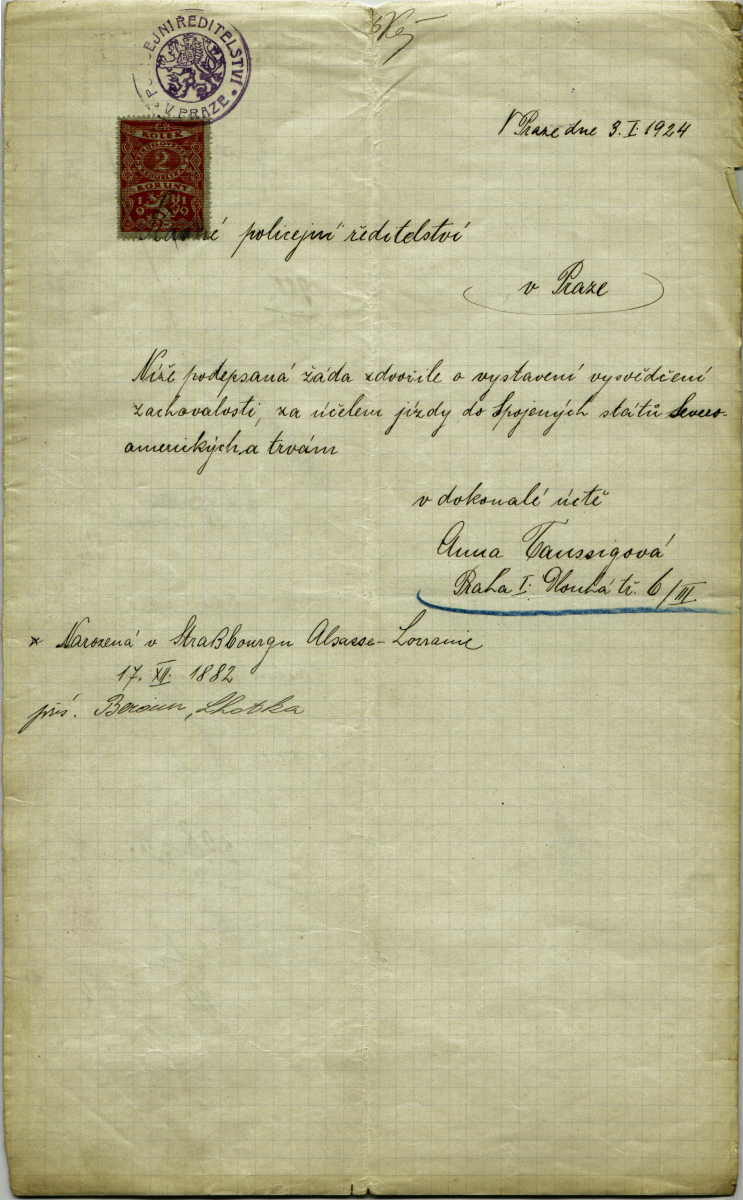 POLICEJNÍ ŘEDITELSTVÍ
V PRAZE
KOLEK
2
KORUNY
1919
V Praze dne 3. I. 1924
Slavné policejní ředitelství
v Praze
Níže podepsaná žádá zdvořile o vystavení vysvědčení
zachovalosti, za účelem jízdy do Spojených států Severo-
amerických a trvám
v dokonalé úctě
Anna Taussigová
Praha I. Dlouhá tř. 6/III.
x Narozená v Straßbourgu Alsasse-Lorranie
17. XII. 1882
přís. Beroun, Lhotka